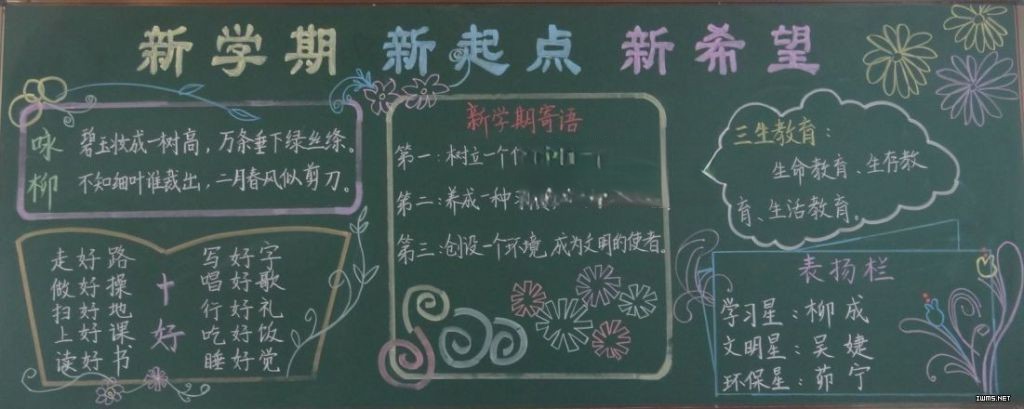 新学期 新起点 新希望
咏柳
碧玉妆成一树高，万条垂下绿丝绦。
不知细叶谁裁出，二月春风似剪刀。
十好
走好路
做好操
扫好地
上好课
读好书
写好字
唱好歌
行好礼
吃好饭
睡好觉
新学期寄语
第一：树立一个
第二：养成一种
第三：创设一个环境，成为文明的使者。
三生教育：
生命教育、生存教
育、生活教育。
表扬栏
学习星：柳成
文明星：吴婕
环保星：茆宁
IWMS.NET